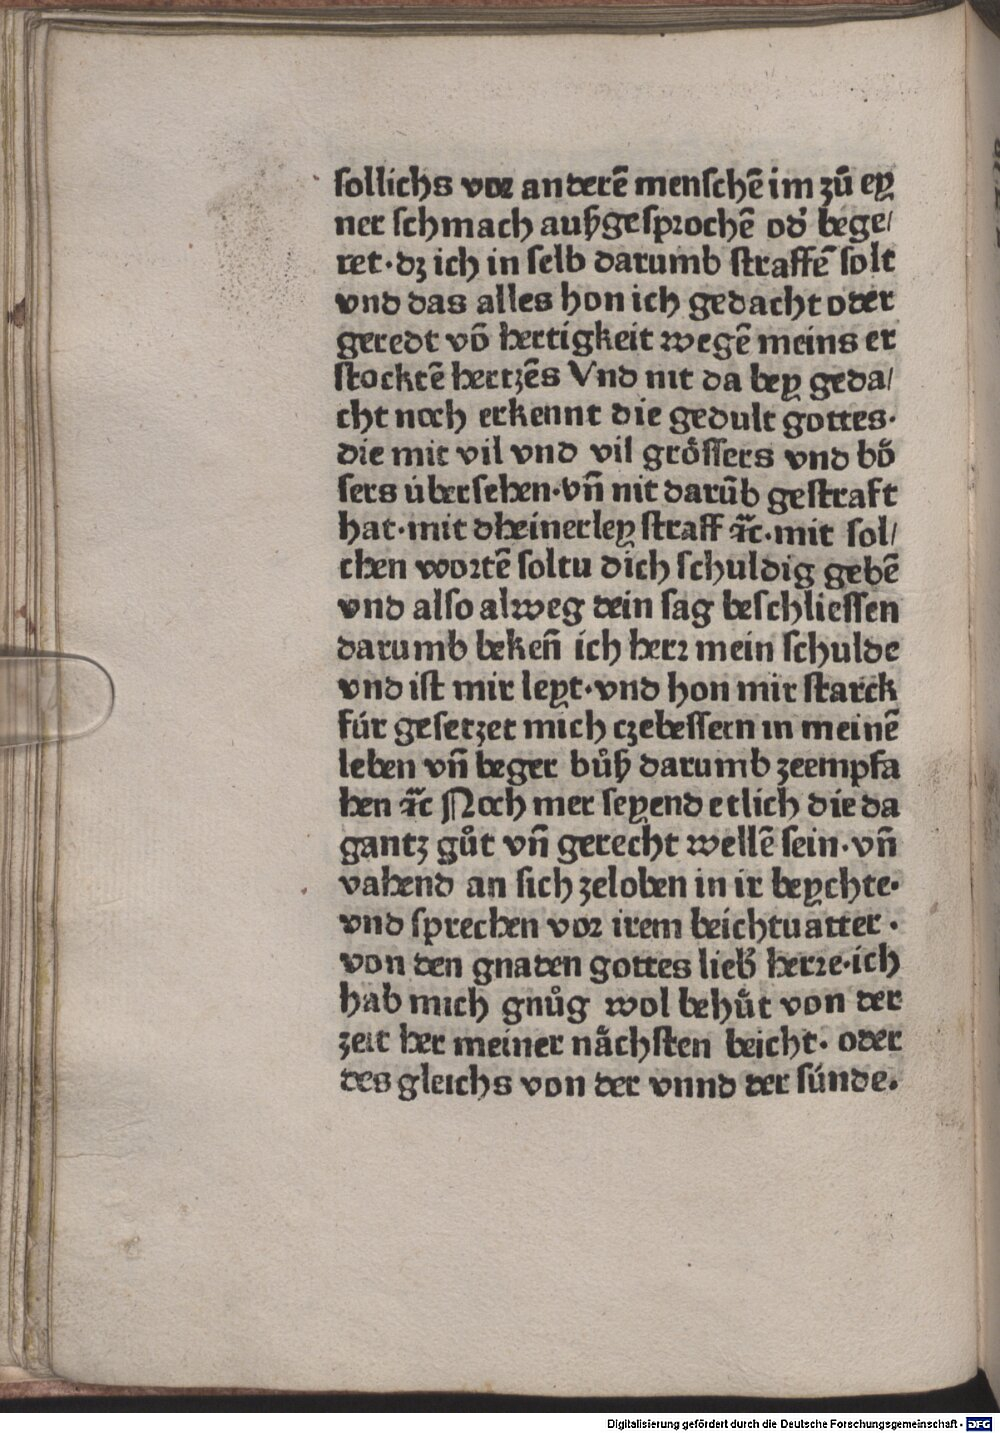 sollichs vor anderē menschē im zū ey
ner schmach außgesprochē od' bege/
ret·dz ich in selb darumb straffē solt
vnd das alles hon ich gedacht oder
geredt vō hertigkeit wegē meins er
stocktē hertzēs Vnd nit da bey geda/
cht noch erkennt die gedult gottes·
die mit vil vnd vil grössers vnd bö
sers übersehen·vn̄ nit darūb gestraft
hat·mit dheinerley straff ⁊c̄·mit sol/
chen wortē soltu dich schuldig gebē
vnd also alweg dein sag beschliessen
darumb beken̄ ich herr mein schulde
vnd ist mir leyt·vnd hon mir starck
für gesetzet mich czebessern in meinē
leben vn̄ beger bůß darumb zeempfa
hen ⁊c̄ Noch mer seyend etlich die da
gantz gůt vn̄ gerecht wellē sein·vn̄
vahend an sich zeloben in ir beychte·
vnd sprechen vor irem beichtuatter·
von den gnaden gottes lieb' herre·ich
hab mich gnůg wol behüt von der
zeit her meiner nächsten beicht· oder
des gleichs von der vnnd der sünde.
Digitalisierung gefördert durch die Deutsche Forschungsgemeinschaft - DFG